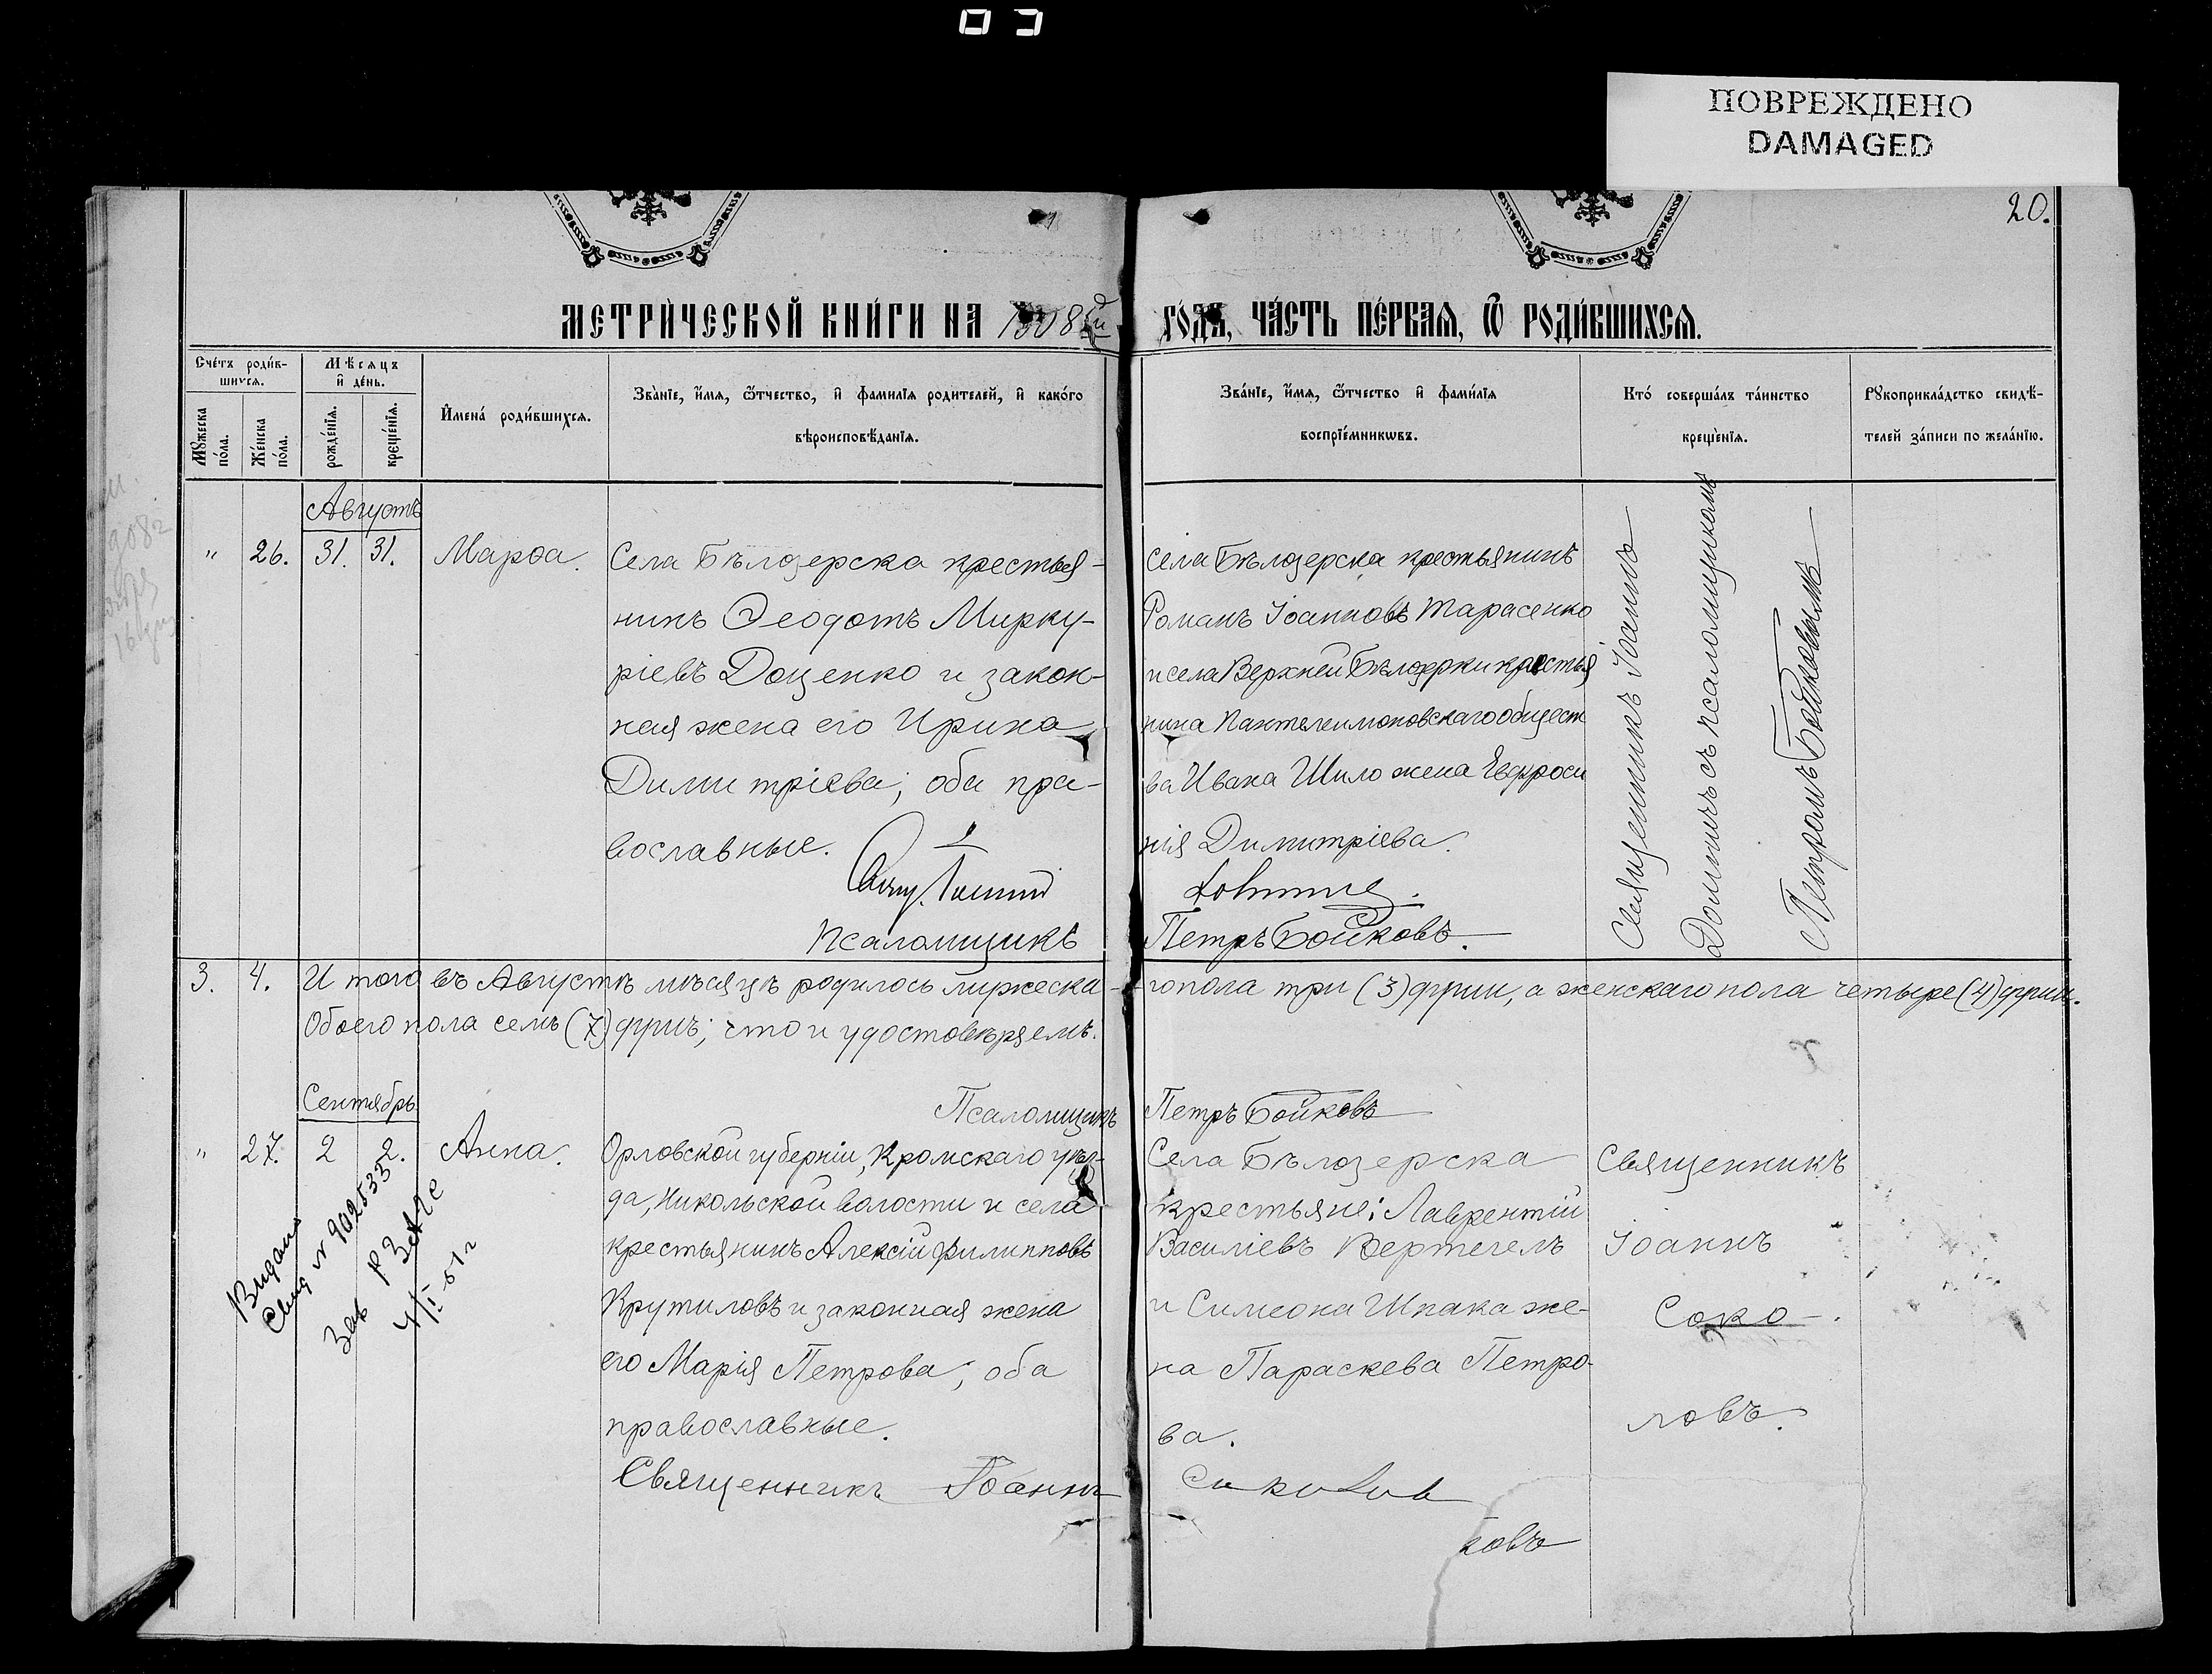 ПОВРЕЖДЕНО
DAMAGED
20.
МЕТРИ́ЧЕСКОЙ КНИ́ГИ НА 1908й
ГО́ДЪ, ЧА́СТЬ ПЕ́РВАЯ, Ѿ РОДИ́ВШИХСЯ.
Сче́тъ роди́в-
шихся.
Мѣ́сяцъ
и҆ де́нь.
Мꙋ́жеска
по́ла.
Же́нска
по́ла.
рожде́нїя.
креще́нїя.
И҆мена́ роди́вшихся.
Зва́нїе, и҆́мя, ѻ҆́тчество, и҆ фами́лїя роди́телей, и҆ како́го
вѣроисповѣ́данїя.
Зва́нїе, и҆́мя, ѻ҆́тчество и҆ фами́лїя
воспрїе́мникѡвъ.
Кто́ соверша́лъ та́инство
креще́нїя.
Рꙋкоприкла́дство свидѣ́-
телей за́писи по жела́нїю.
Августъ
" 26. 31. 31. Марѳа.
Села Бѣлозерска крестья-
нинъ Ѳеодотъ Мирку-
ріевъ Доценко и закон-
ная жена его Ирина
Димитріева; оба пра-
вославные.
Псаломщикъ
Села Бѣлозерска крестьянинъ
Романъ Іоанновъ Тарасенко
и села Верхней Бѣлозерки крестья
нина Пантелеимоновскаго общест
ва Ивана Шило жена Евфроси
нія Димитріева.
Петръ Бойковъ.
Священникъ Іоаннъ
съ псаломщикомъ
Петромъ Бойковымъ
3. 4. И того въ Августѣ мѣсяцѣ родилось мужеска-го пола три (3) души, а женскаго пола четыре (4) души.
Обоего пола семь (7) душъ; что и удостовѣряемъ.
Псаломщикъ Петръ Бойковъ
Сентябрь
" 27. 2 2. Анна.
Орловской губерніи, Кромскаго уѣз-
да, Никольской волости и села
крестьянинъ Алексій Филипповъ
Крутиловъ и законная жена
его Марія Петрова; оба
православные.
Священникъ Іоаннъ
Села Бѣлозерска
крестьяне: Лаврентій
Василіевъ Вертегелъ
и Симеона Шпака же-
на Параскева Петро-
ва.
Соколов
ковъ
Священникъ
Іоаннъ
Соко-
ловъ.
Видано
Свид № 902533